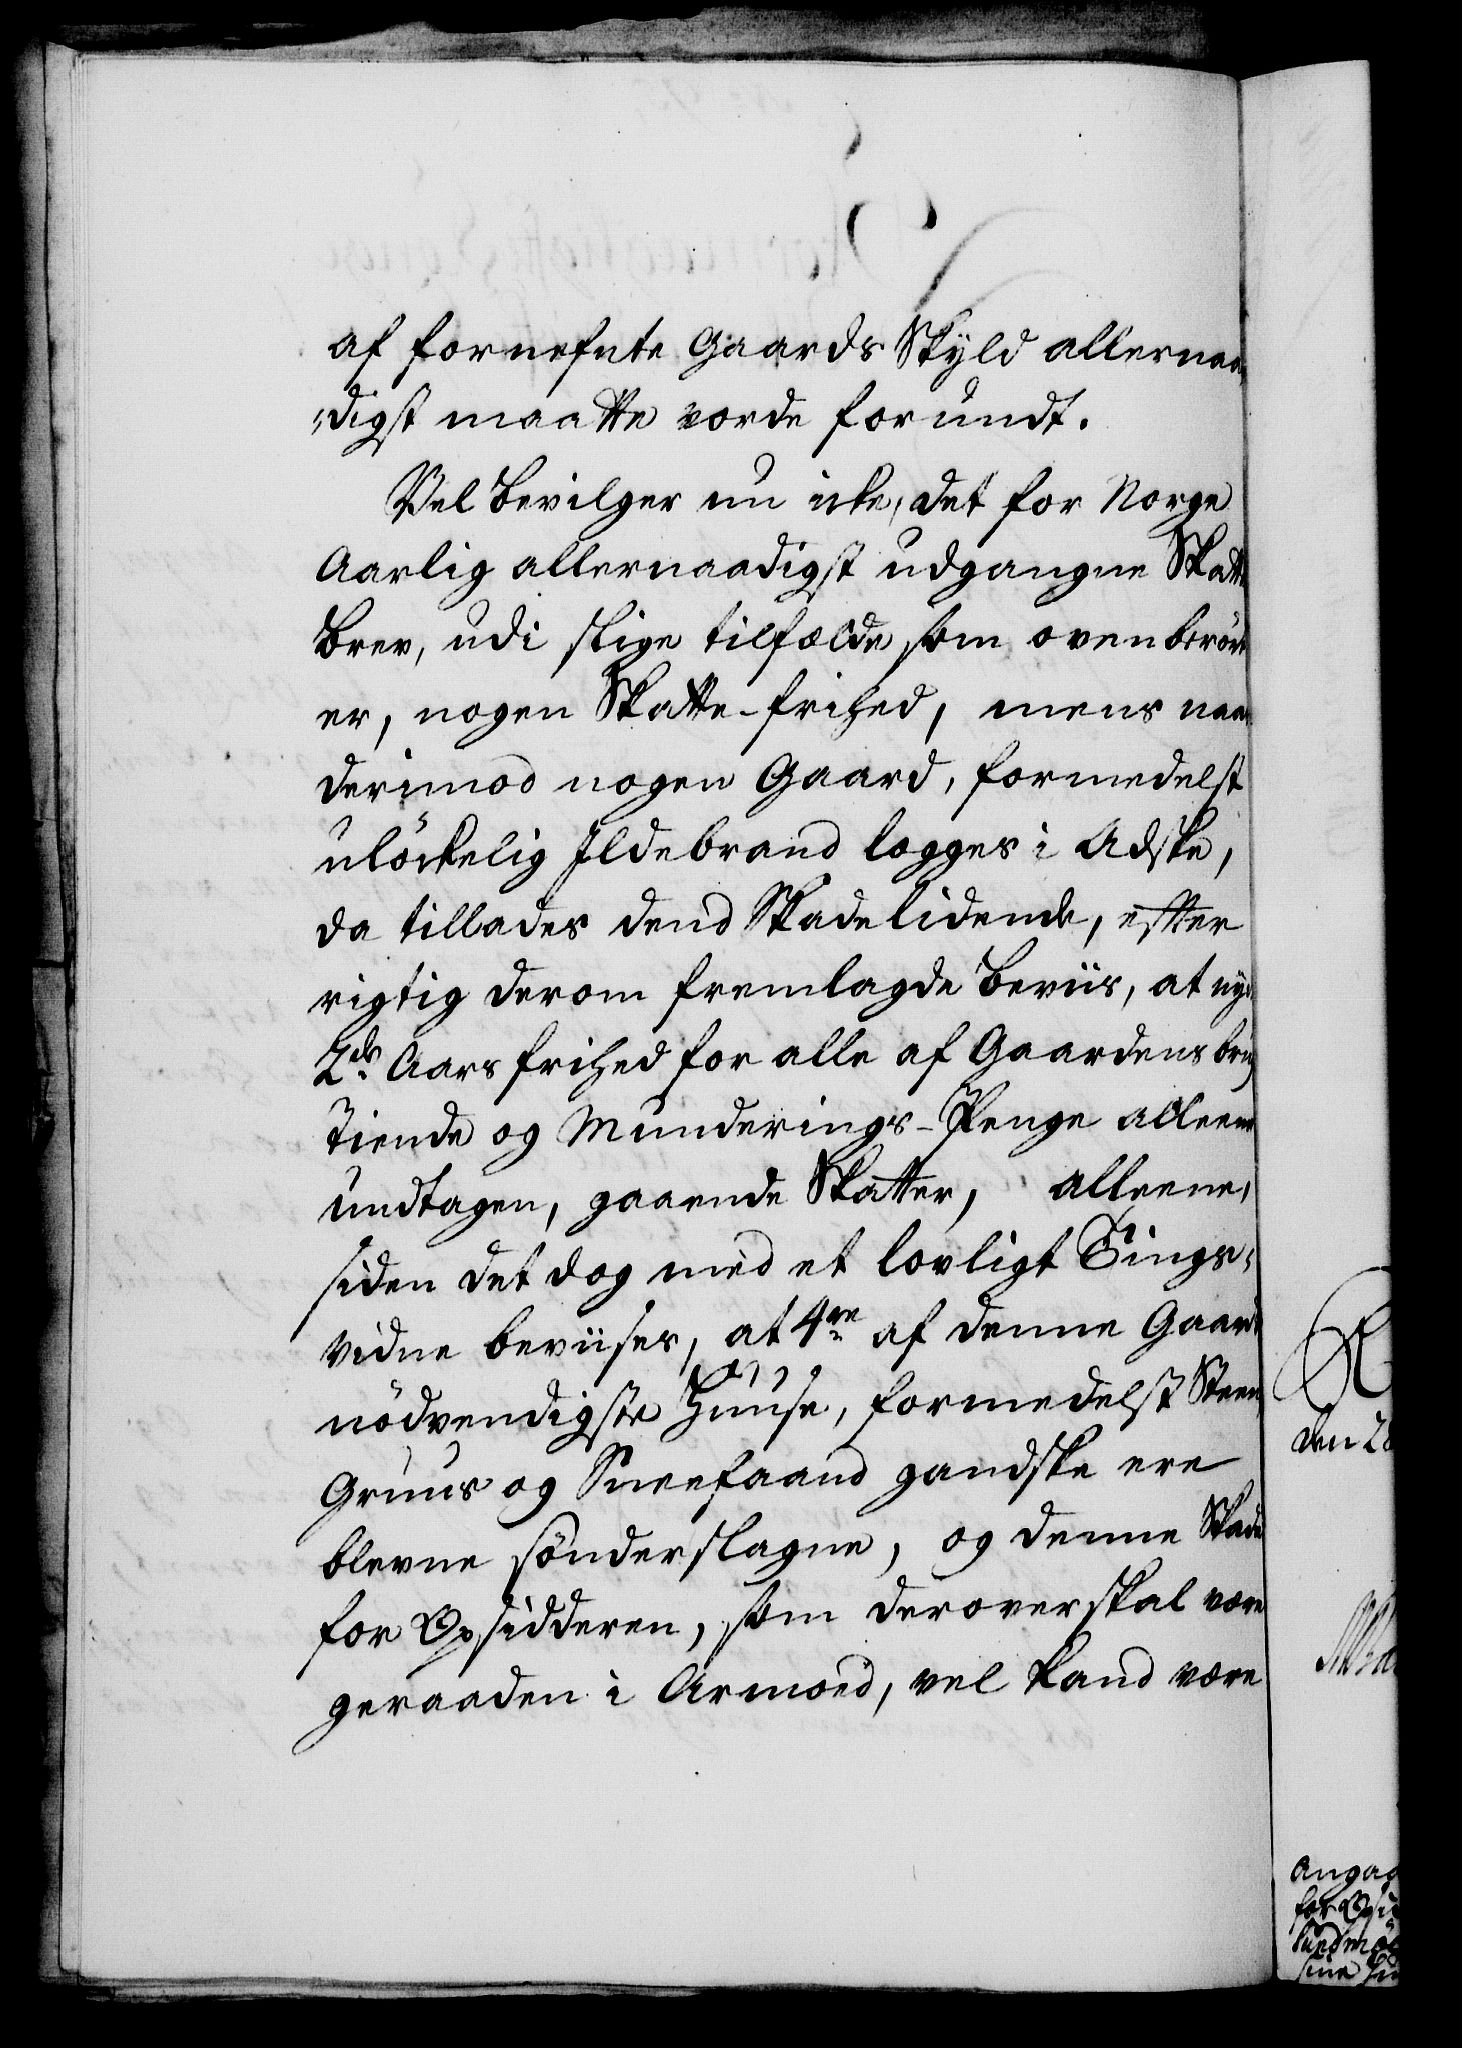 af fornefnte Gaards Skyld allernaa-
digst maatte vorde forundt.
Vel bevilger nu icke, det for Norge
Aarlig allernaadigst udgangne Skatte
Brev, udi slige tilfælde som ovenberört
er, nogen Skatte-frihed, mens naar
derimod nogen Gaard, formedelst
ulöckelig Ildebrand legges i Adske,
da tillades dend Skadelidende, efter
rigtig derom fremlagde beviis, at nyde
2de Aars frihed for alle af Gaardens brug
Tiende og Munderings-Penge alleene
undtagen, gaaende Skatter, alleene,
siden det dog med et lovligt Tings-
vidne beviises, at 4re af denne Gaards
nödvendigste Huuse, formedelst Steen
Gruus og Sneefaand gandske ere
blevne sönderslagne, og denne Skade
for Opsidderen, som derover skal være
geraaden i Armoed, vel kand være
den 2
Angaa
for Opsi
Sundmö
sine Hu